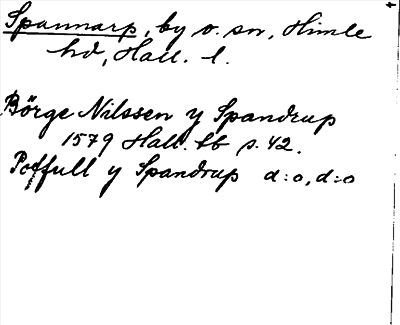 Spannarp, by o. sn, Himle
hd, Hall. l.
Börge Nilssen y Spandrup
1579 Hall. lb s. 42.
Poffull y Spandrup d:o, d:o